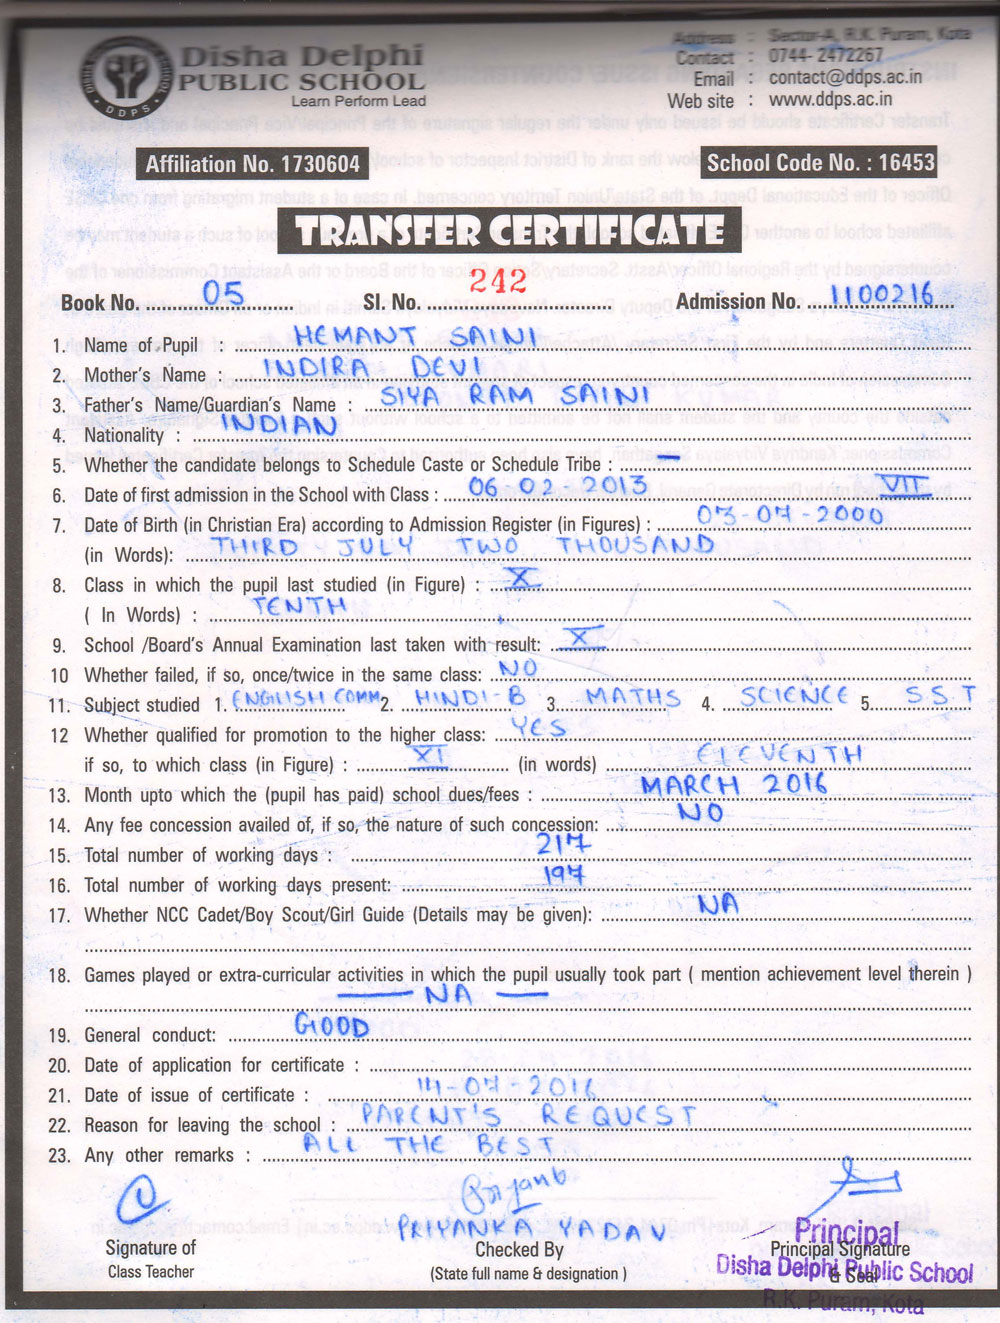 Disha Delphi
PUBLIC SCHOOL
Learn Perform Lead
DDPS
Address : Sector-A, R.K. Puram, Kota
Contact : 0744- 2472267
Email : contact@ddps.ac.in
Web site : www.ddps.ac.in
Affiliation No. 1730604
School Code No. : 16453
TRANSFER CERTIFICATE
Book No. 05 Sl. No. 242 Admission No. 1100216
1. Name of Pupil : HEMANT SAINI
2. Mother's Name : INDIRA DEVI
3. Father's Name/Guardian's Name : SIYA RAM SAINI
4. Nationality : INDIAN
5. Whether the candidate belongs to Schedule Caste or Schedule Tribe : —
6. Date of first admission in the School with Class : 06 02 2013 VII
7. Date of Birth (in Christian Era) according to Admission Register (in Figures) : 03-07-2000
(in Words): THIRD JULY TWO THOUSAND
8. Class in which the pupil last studied (in Figure) : X
( In Words) : TENTH
9. School /Board's Annual Examination last taken with result: X
10 Whether failed, if so, once/twice in the same class: NO
11. Subject studied 1. ENGLISH COMM 2. HINDI-B 3. MATHS 4. SCIENCE 5. SST
12 Whether qualified for promotion to the higher class: YES
if so, to which class (in Figure) : XI (in words) ELEVENTH
13. Month upto which the (pupil has paid) school dues/fees : MARCH 2016
14. Any fee concession availed of, if so, the nature of such concession: NO
15. Total number of working days : 217
16. Total number of working days present: 197
17. Whether NCC Cadet/Boy Scout/Girl Guide (Details may be given): NA
18. Games played or extra-curricular activities in which the pupil usually took part ( mention achievement level therein )
— NA —
19. General conduct: GOOD
20. Date of application for certificate :
21. Date of issue of certificate : 14-07-2016
22. Reason for leaving the school : PARENT'S REQUEST
23. Any other remarks : ALL THE BEST
PRIYANKA YADAV
Signature of
Class Teacher
Checked By
(State full name & designation )
Principal
Principal Signature
& Seal
Disha Delphi Public School
R.K. Puram, Kota